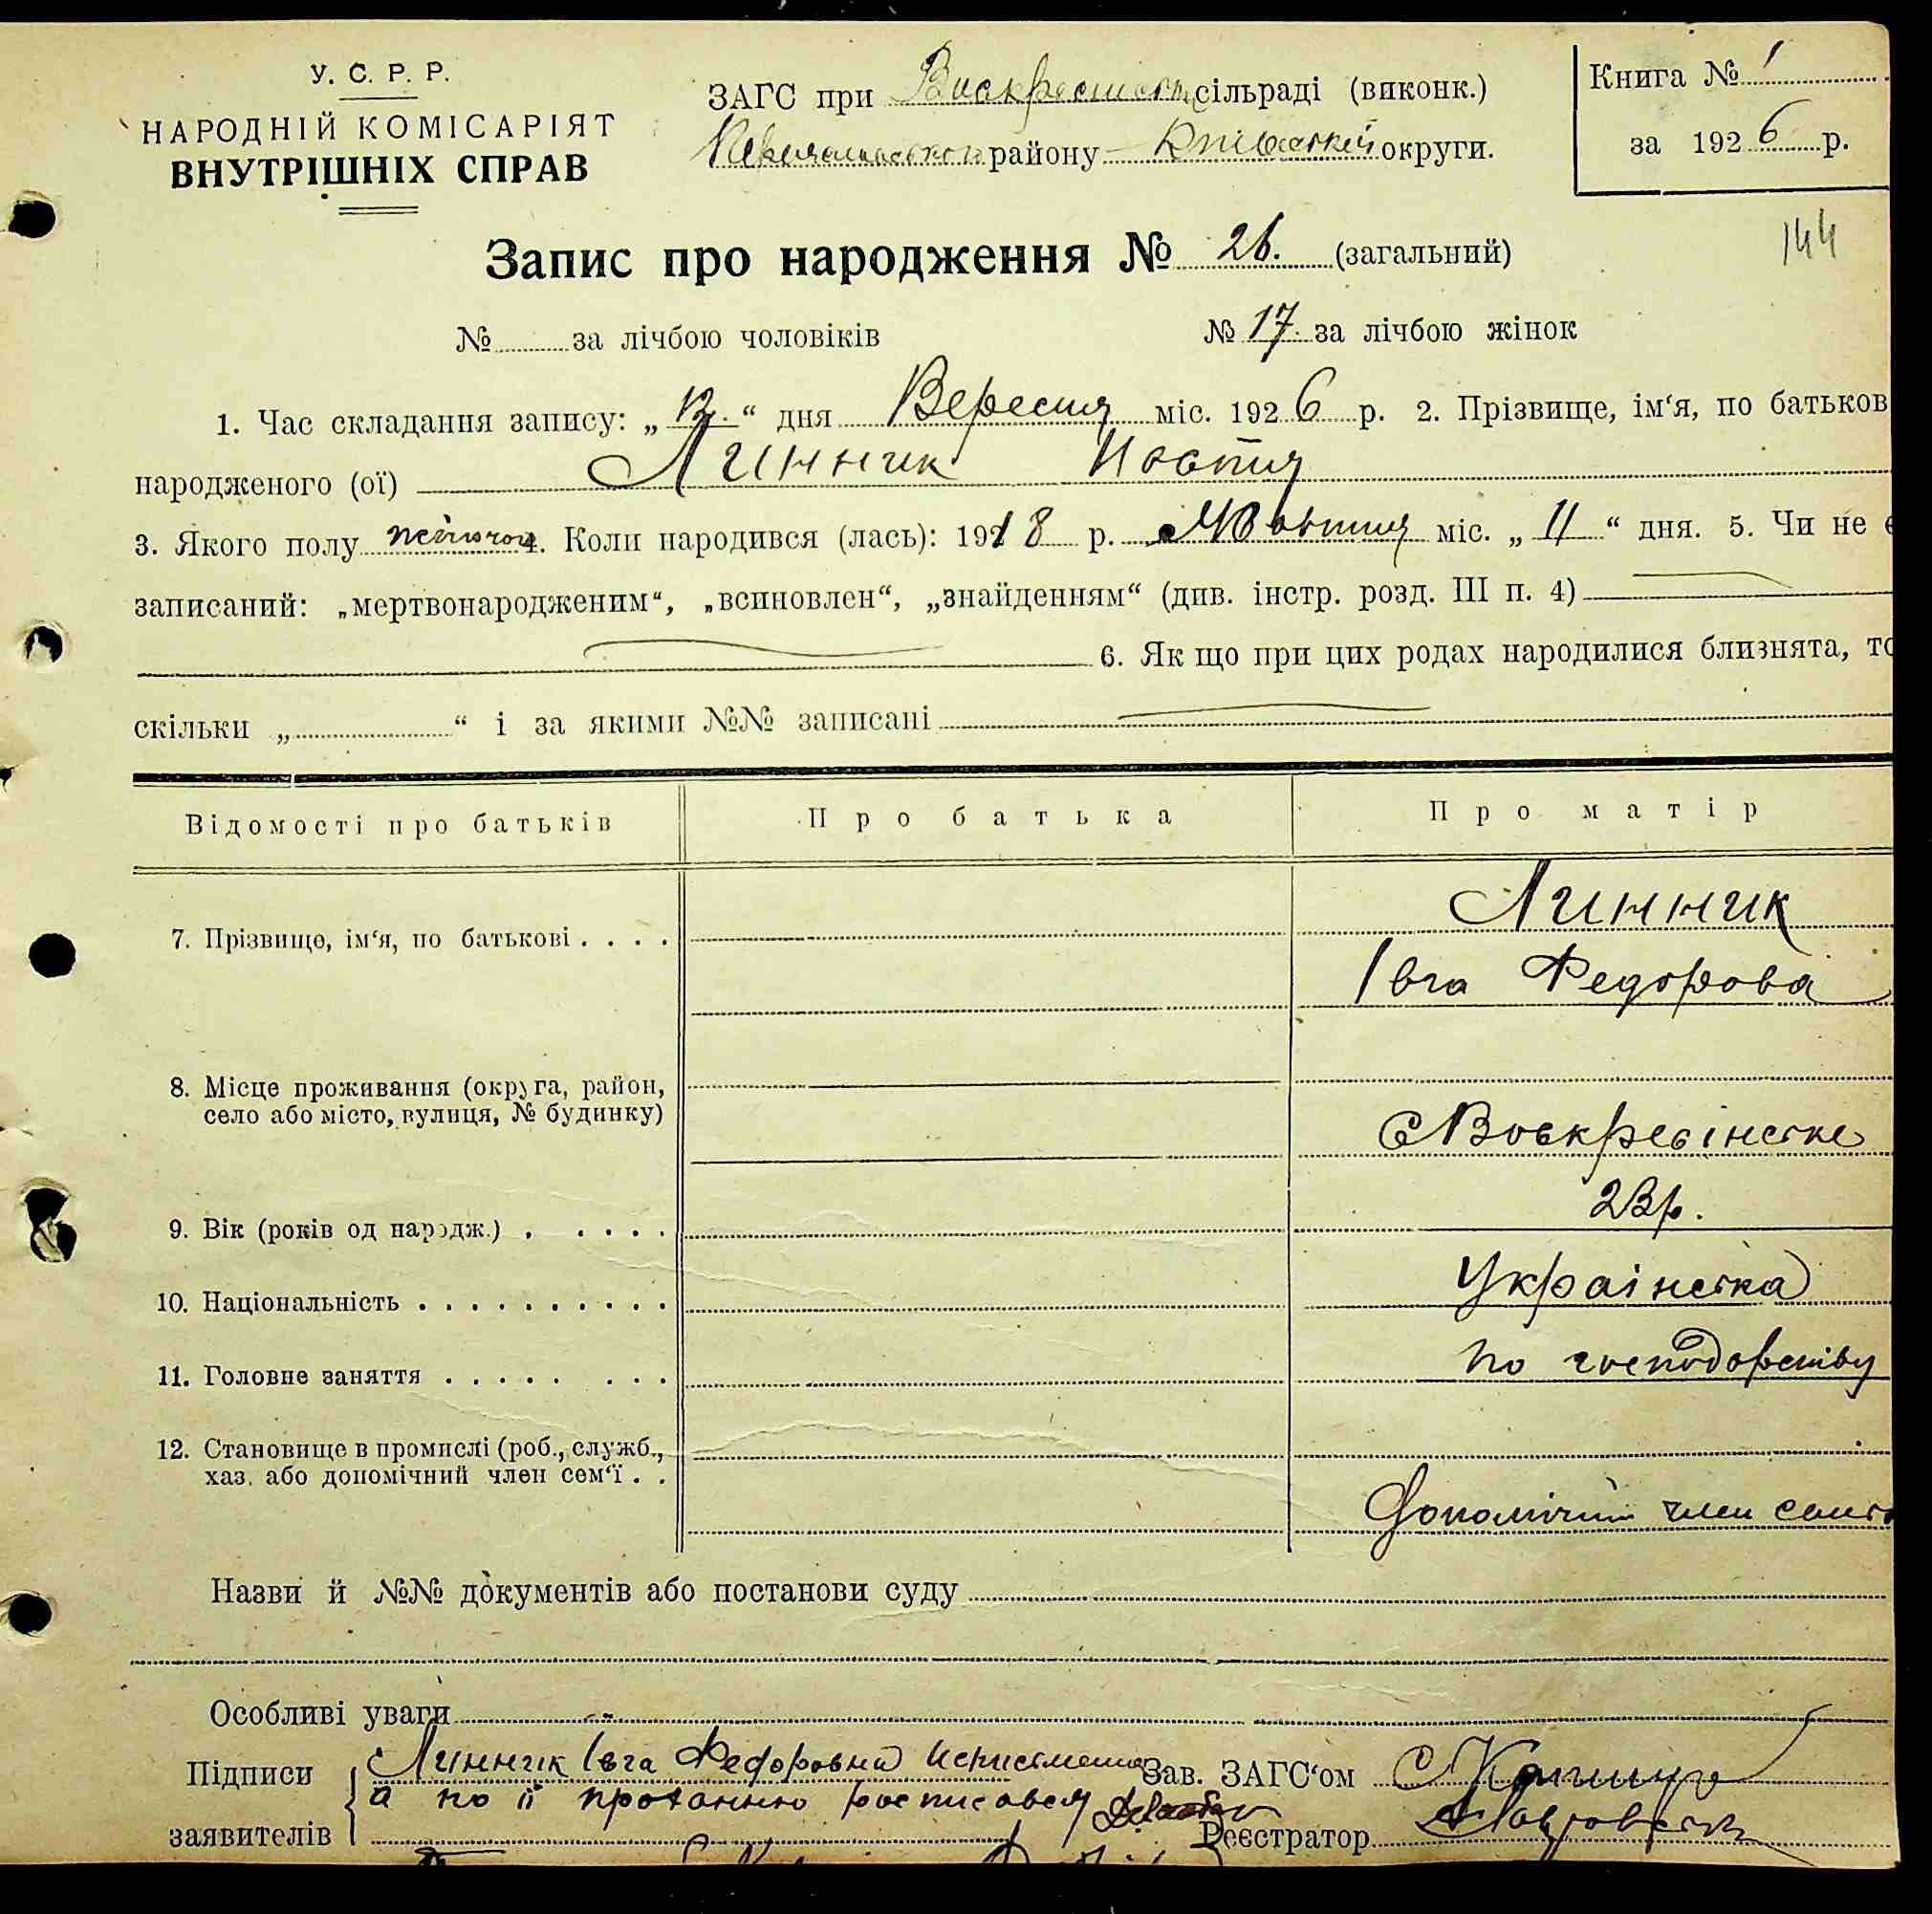 У. С. Р. Р.
НАРОДНІЙ КОМІСАРІЯТ
ВНУТРІШНІХ СПРАВ
ЗАГС при сільраді (виконк.)
району Київської округи.
Книга № 1
за 1926 р.
144
Запис про народження № 26. (загальний)
№ за лічбою чоловіків № 17. за лічбою жінок
1. Час складання запису: „ “ дня Вересня міс. 1926 р. 2. Прізвище, ім‘я, по батьков
народженого (ої) Линник Настя
3. Якого полу жіночого 4. Коли народився (лась): 1918 р. Жовтня міс. „11“ дня. 5. Чи не є
записаний: „мертвонародженим“, „всиновлен“, „знайденням“ (див. інстр. розд. III п. 4)
6. Як що при цих родах народилися близнята, то
скільки „ “ і за якими №№ записані
Відомості про батьків Про батька Про матір
7. Прізвище, ім‘я, по батькові . . . . Линник
Івга Федорова
8. Місце проживання (округа, район,
село або місто, вулиця, № будинку)
с Воскресінське
9. Вік (років од народж.) . . . . . 23 р.
10. Національність . . . . . . . . . . Українска
11. Головне заняття . . . . . . . . по господорству
12. Становище в промислі (роб., служб.,
хаз. або допомічний член сем‘ї . .
Допомічний член
Назви й №№ документів або постанови суду
Особливі уваги
Підписи Линник Івга Федоровна Зав. ЗАГС‘ом
а по її проханню росписався
заявителів Реєстратор